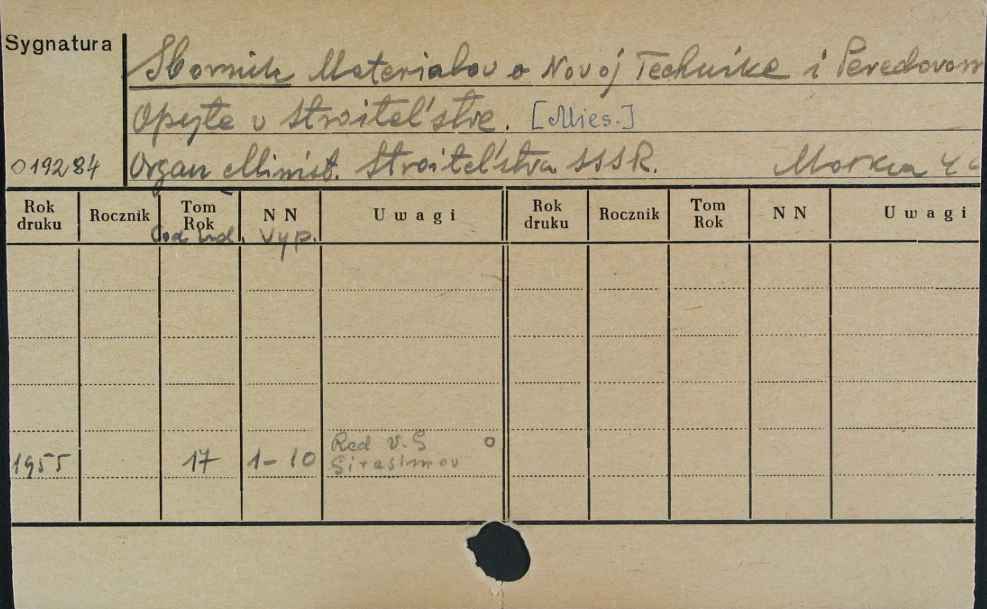 Sygnatura
Sbornik Materialov o Novoj Technike i Peredovom
Opyte v Stroitel'stve. [Mies.]
019284 Organ Minist. Stroitel'stva SSSR. Moskva 4°
Rok druku Rocznik Tom Rok N N Uwagi Rok druku Rocznik Tom Rok N N Uwagi
God izd. Vyp.
Red V. G
1955 17 1-10 Girasimov